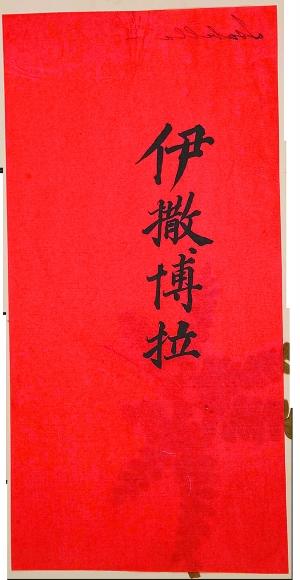 Isabella
伊撒博拉